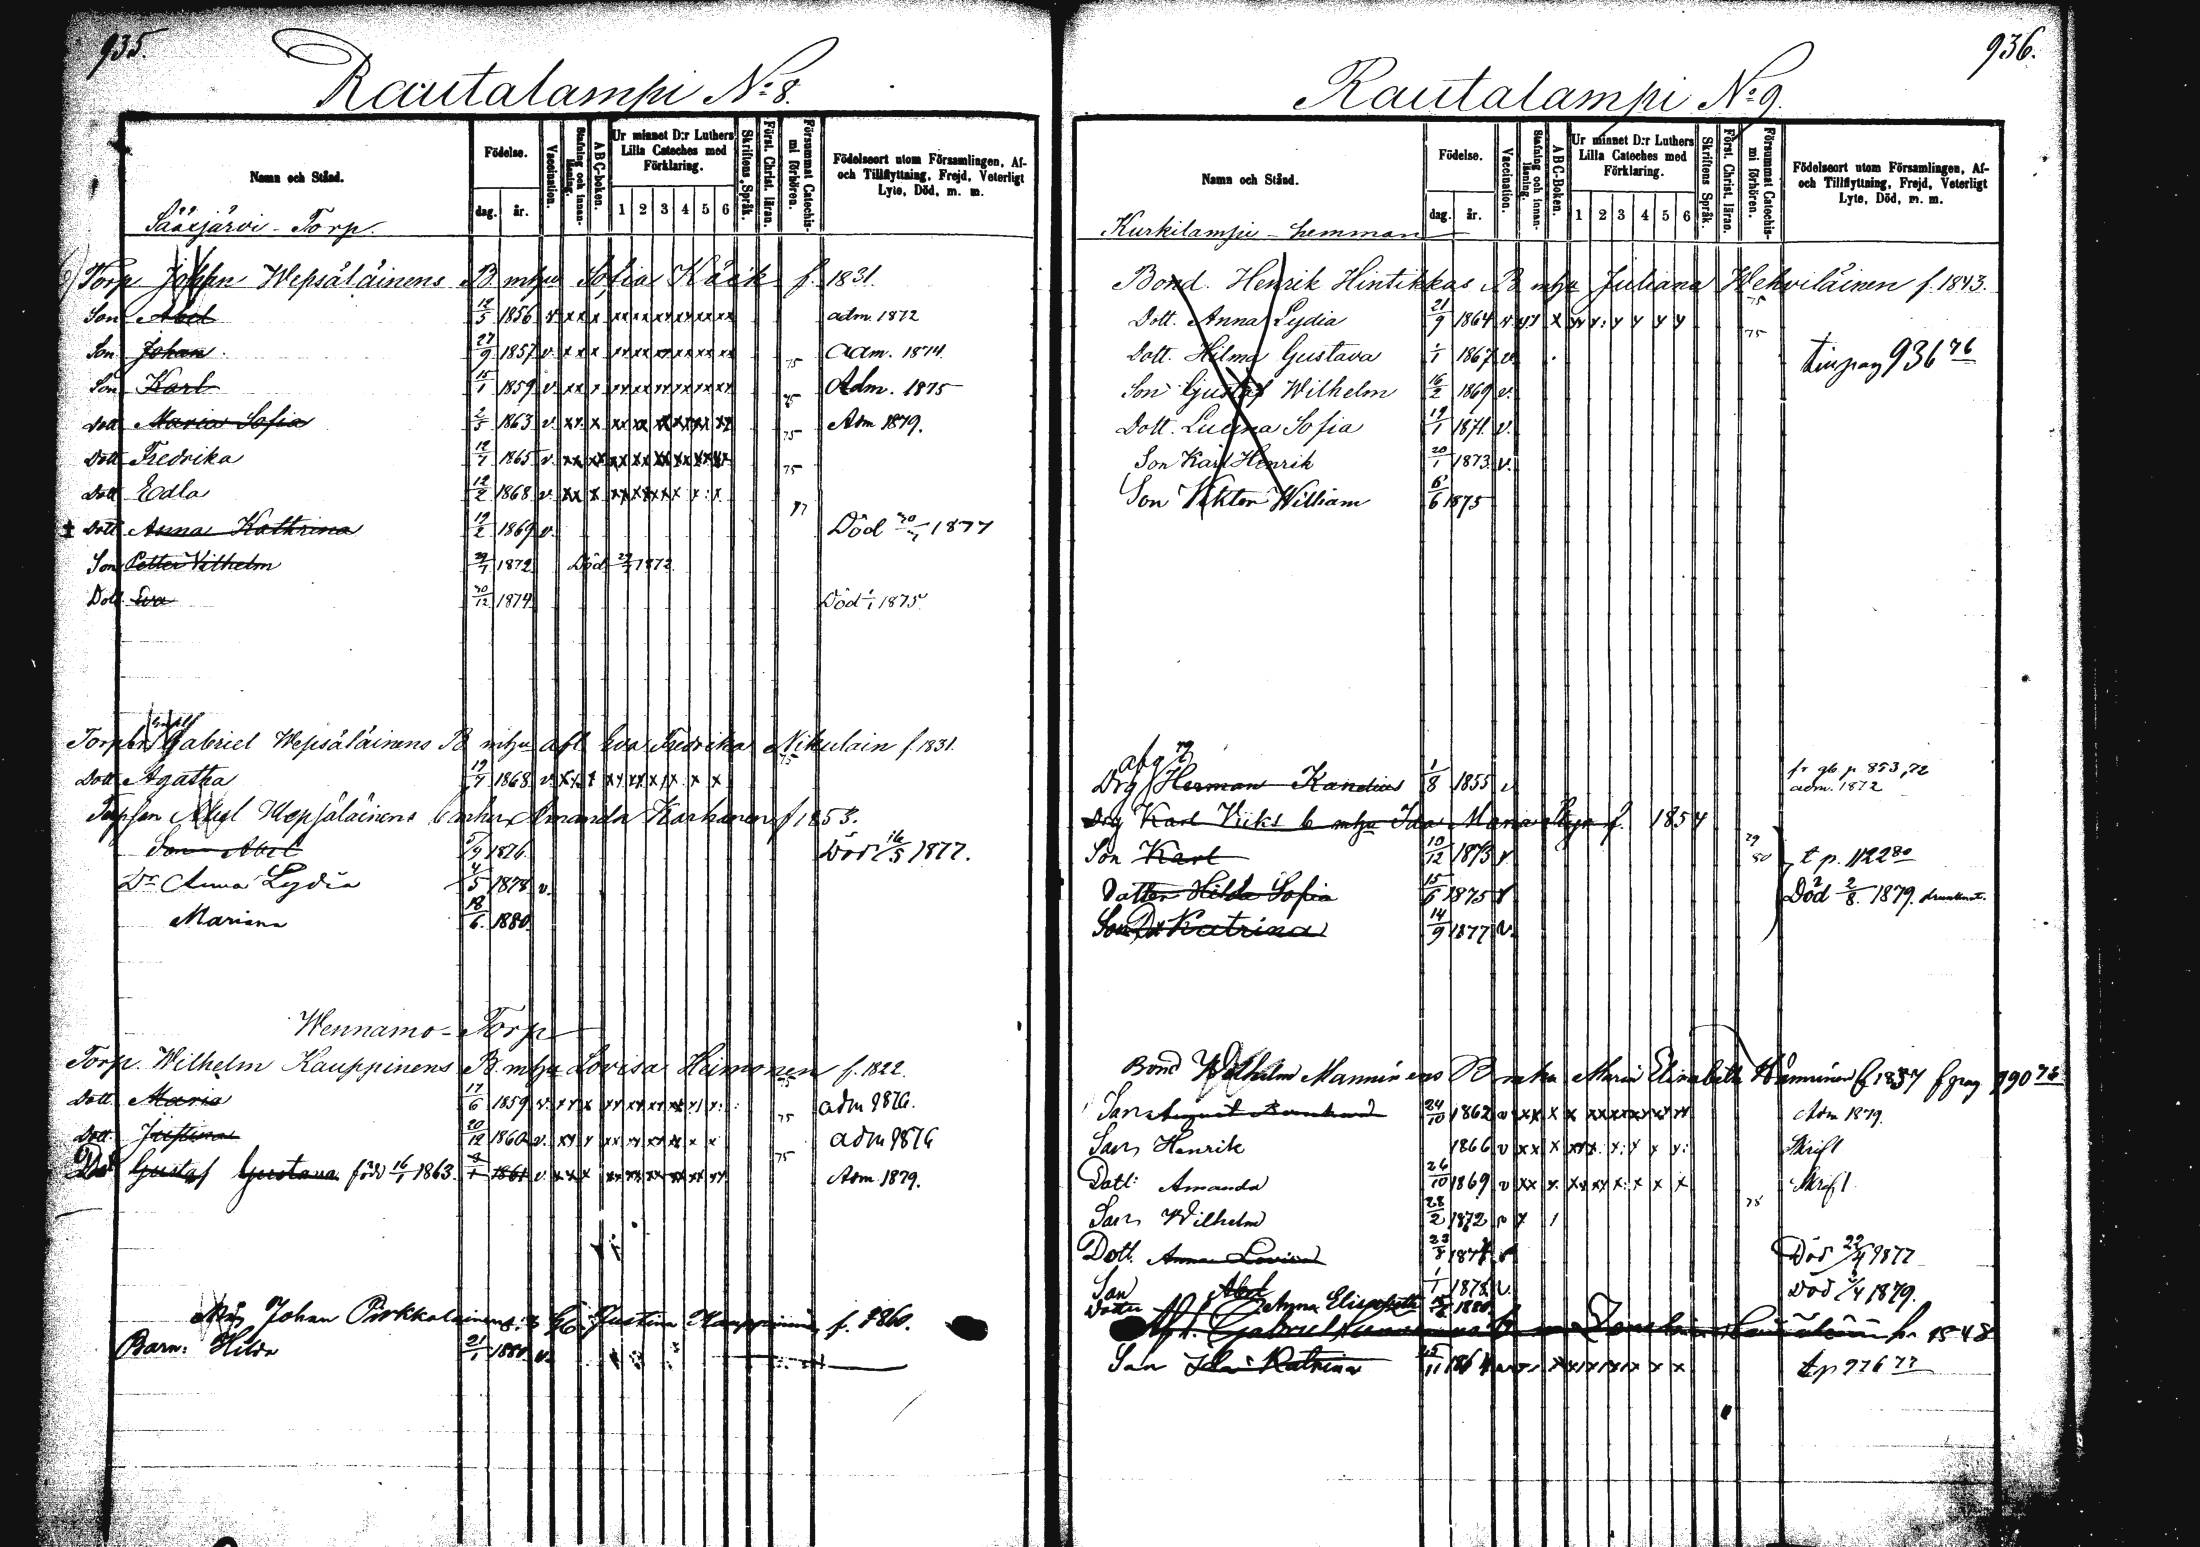 935.
Rautalampi No 8.
Namn och Stånd.
Födelse.
dag. år.
Vaccination.
Stafning och innan-läsning.
ABC-boken.
Ur minnet D:r Luthers Lilla Cateches med Förklaring.
1 2 3 4 5 6
Skriftens Språk.
Först. Christ. läran.
Försummat Catechis-mi förhören.
Födelseort utom Församlingen, Af- och Tillflyttning, Frejd, Veterligt Lyte, Död, m. m.
Sääxjärvi - Torp.
Torp Johan Wepsäläinens B mhu Sofia Kääk f. 1831.
Son Abel 12/5 1856 v xx x xx xx xx xx xx xx adm. 1872
Son Johan 27/9 1857 v. x x x 75 adm. 1874
Son Karl 15/1 1859 v. xx x 75 Adm. 1875
Dott Maria Sofia 2/5 1863 v. xx x 75 Adm 1879.
Dott Fredrika 12/7 1865 v xx xx 75
Dott Edla 12/2 1868 v. xx x 77
Dott Anna Kathrina 19/2 1869 v. Död 1877
Son Petter Vilhelm 1872 Död 1872
Dott Eva 30/12 1874 Död 1875
Torp Gabriel Wepsäläinens B mhu afl. Eva Fredrika Nikulain f. 1831.
Dott Agatha 19/7 1868 v. 75
Abel Wepsäläinens b mhu Amanda Karhanen f 1853.
Son Abel 5/9 1876 Död 16/5 1877.
Dr Anna Lydia 4/5 1878 v.
Mariana 18/6 1880
Wennamo - Torp
Torp. Wilhelm Kauppinens B mhu Lovisa Heimonen f. 1822.
Dott Maria 17/6 1859 v. 75 adm 1876.
Dott. Justina 20/12 1860 v. 75 adm 1876
Gustaf Gustava född 16/7 1863. 1861 v 75 Adm 1879.
Johan Pirkkalainens Justina Kauppinen f. 1860.
Barn: Hilda 21/1 1880 v.
936.
Rautalampi No 9.
Namn och Stånd.
Födelse.
dag. år.
Vaccination.
Stafning och innan-läsning.
ABC-Boken.
Ur minnet D:r Luthers Lilla Cateches med Förklaring.
1 2 3 4 5 6
Skriftens Språk.
Först. Christ. läran.
Försummat Catechis-mi förhören.
Födelseort utom Församlingen, Af- och Tillflyttning, Frejd, Veterligt Lyte, Död, m. m.
Kurkilampi - hemman
Bond. Henrik Hintikkas B mhu Juliana Wehviläinen f. 1843.
Dott. Anna Lydia 21/9 1864 v 75
Dott. Hilma Gustava 1/1 1867 v. 75 936 76
Son Gustaf Wilhelm 16/2 1869 v.
Dott. Lucina Sofia 19/1 1871. v.
Son Karl Henrik 20/1 1873. v.
Son Viktor William 6/6 1875
Drg Herman Kandius 1/8 1855 v fr gb p 853, 72 adm. 1872
Drg Karl Viiks b mhu Ida Maria 1854
Son Karl 10/12 1873 v 79 80 t p. 1122 80
Dotter Hilda Sofia 15/6 1875 v Död 2/8 1879.
Son Katrina 14/9 1877 v.
Bond Wilhelm Manninens B mhu Maria Elisabeth Hänninen f 1837 f pag 990 76
Son August 24/10 1862 v Adm 1879.
Son Henrik 1866 v Skrift
Dott: Amanda 26/10 1869 v 78 Skrift
Son Wilhelm 28/2 1872
Dott. Anna Lovisa Död 22/4 1877
Son Abel 1/1 1878 v. Död 1879.
Dotter Anna 1880
Gabriel f. 1848
Son Katrina 1864 t p 976 77